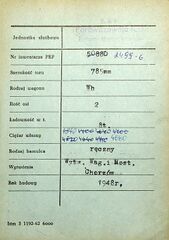 Jednostka służbowa
Nr inwentarza PKP 50880 1499-6
Szerokość toru 785mm
Rodzaj wagonu Wh
Ilość osi 2
Ładowność w t. 8t.
Ciężar własny
Rodzaj hamulca ręczny
Wytwórnia Wytw. Wag. i Most.
Chorzów
Rok budowy 1948r.